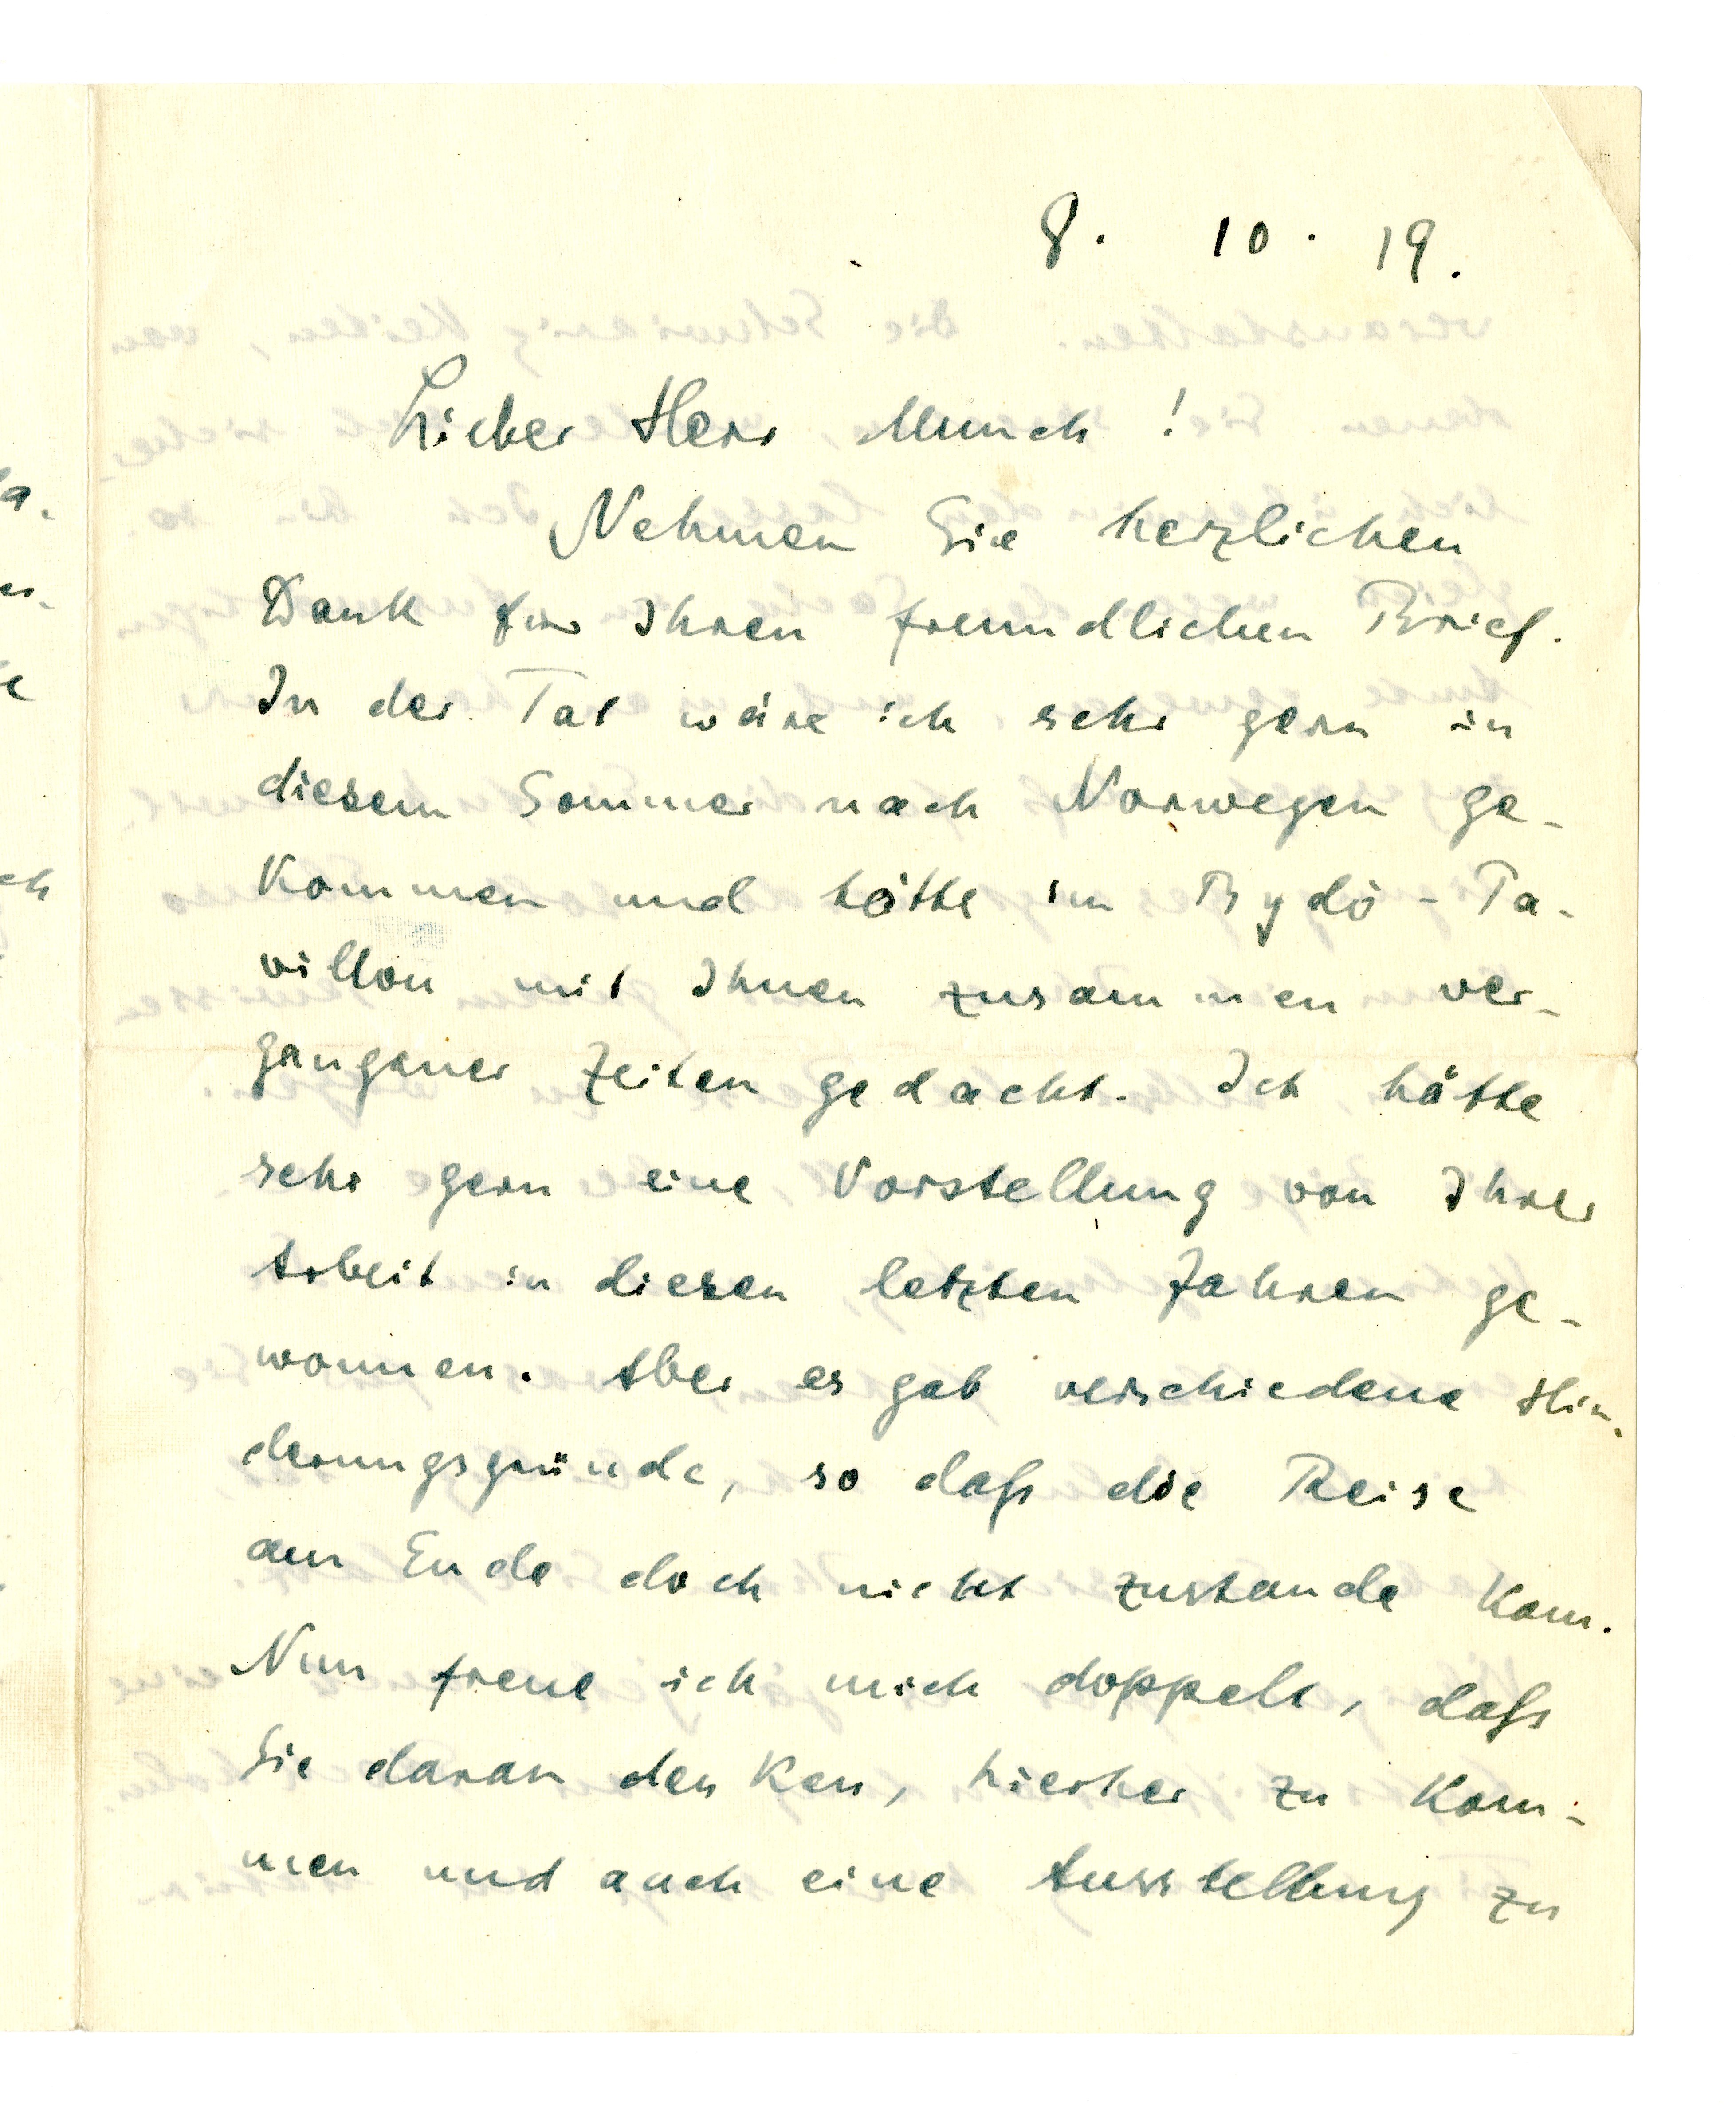 8. 10. 19.
Lieber Herr Munch!
Nehmen Sie herzlichen
Dank für Ihren freundlichen Brief.
In der Tat wäre ich sehr gern in
diesem Sommer nach Norwegen ge-
kommen und hätte im Bydö-Pa-
villon mit Ihnen zusammen ver-
gangener Zeiten gedacht. Ich hätte
sehr gern eine Vorstellung von Ihrer
Arbeit in diesen letzten Jahren ge-
wonnen. Aber es gab verschiedene Hin-
derungsgründe, so daß die Reise
am Ende doch nicht zustande kam.
Nun freue ich mich doppelt, daß
Sie daran denken, hierher zu kom-
men und auch eine Ausstellung zu